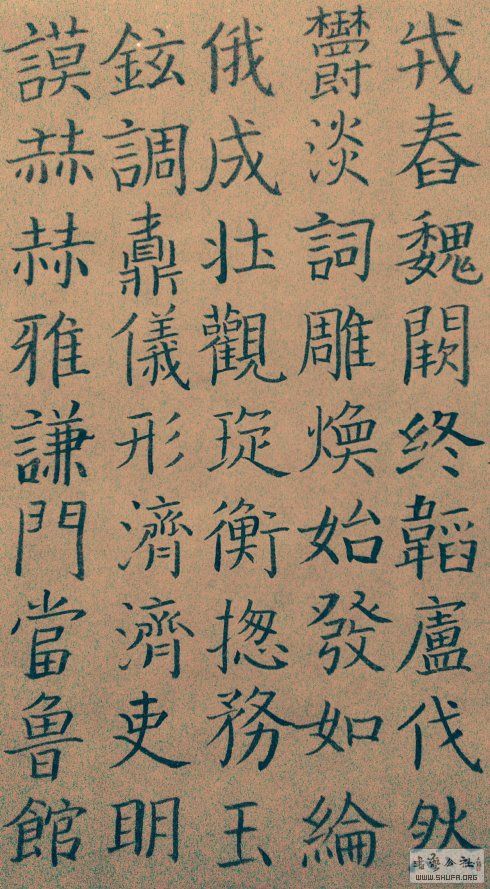 舂魏闕終韜盧伐
鬱淡詞雕煥始發如綸
俄成壯觀琁衡揔務玉
鉉調鼎儀形濟濟吏明
謨赫赫雅謙門當魯館
WWW.SHUFA.ORG